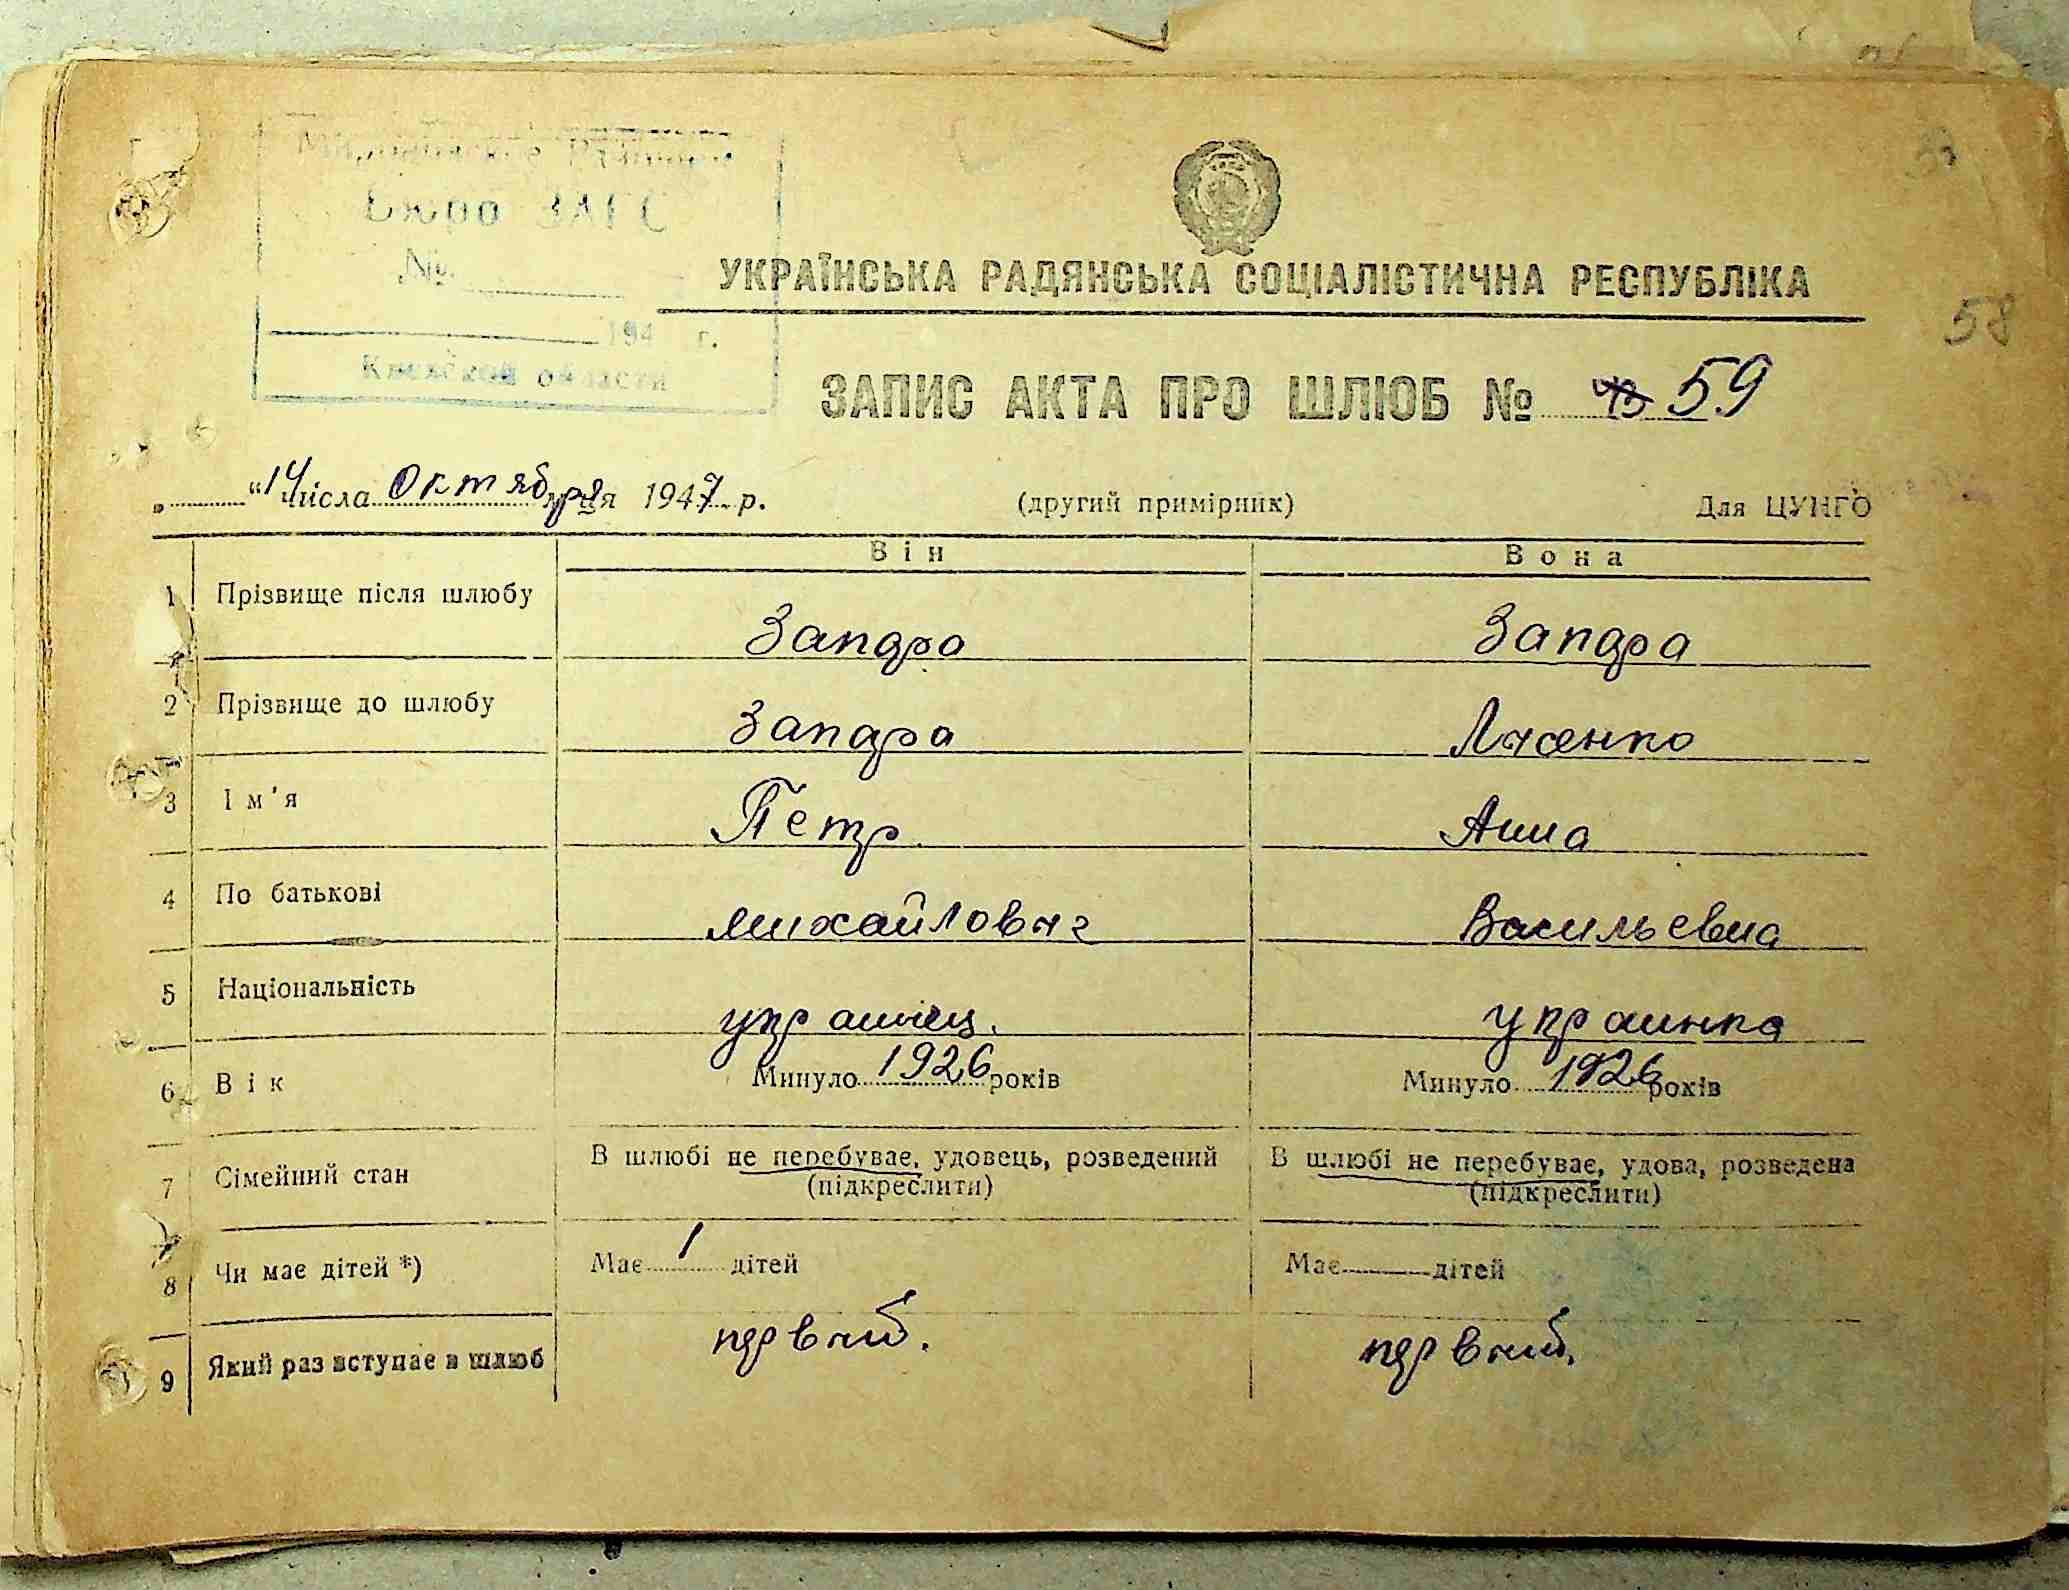 Бюро ЗАГС
№
194 г.
Киевской области
УКРАЇНСЬКА РАДЯНСЬКА СОЦІАЛІСТИЧНА РЕСПУБЛІКА
58
ЗАПИС АКТА ПРО ШЛЮБ № 59
„ “ 14 числа Октября місяця 1947 р. (другий примірник) Для ЦУНГО
Він Вона
1 Прізвище після шлюбу Запара Запара
2 Прізвище до шлюбу Запара Лысенко
3 Ім'я Петр Анна
4 По батькові Михайлович Васильевна
5 Національність украинец. украинка
6 Вік Минуло 1926 років Минуло 1926 років
7 Сімейний стан В шлюбі не перебуває, удовець, розведений В шлюбі не перебуває, удова, розведена
(підкреслити) (підкреслити)
8 Чи має дітей *) Має 1 дітей Має дітей
9 Який раз вступає в шлюб первый. первый.